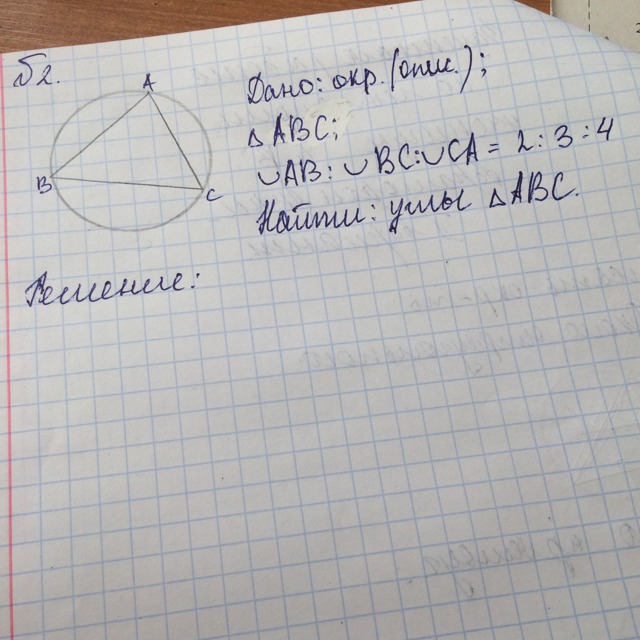 №2.
A
B
C
Дано: окр. (опис.);
△ABC;
◡AB : ◡BC : ◡CA = 2 : 3 : 4
Найти: углы △ABC.
Решение: